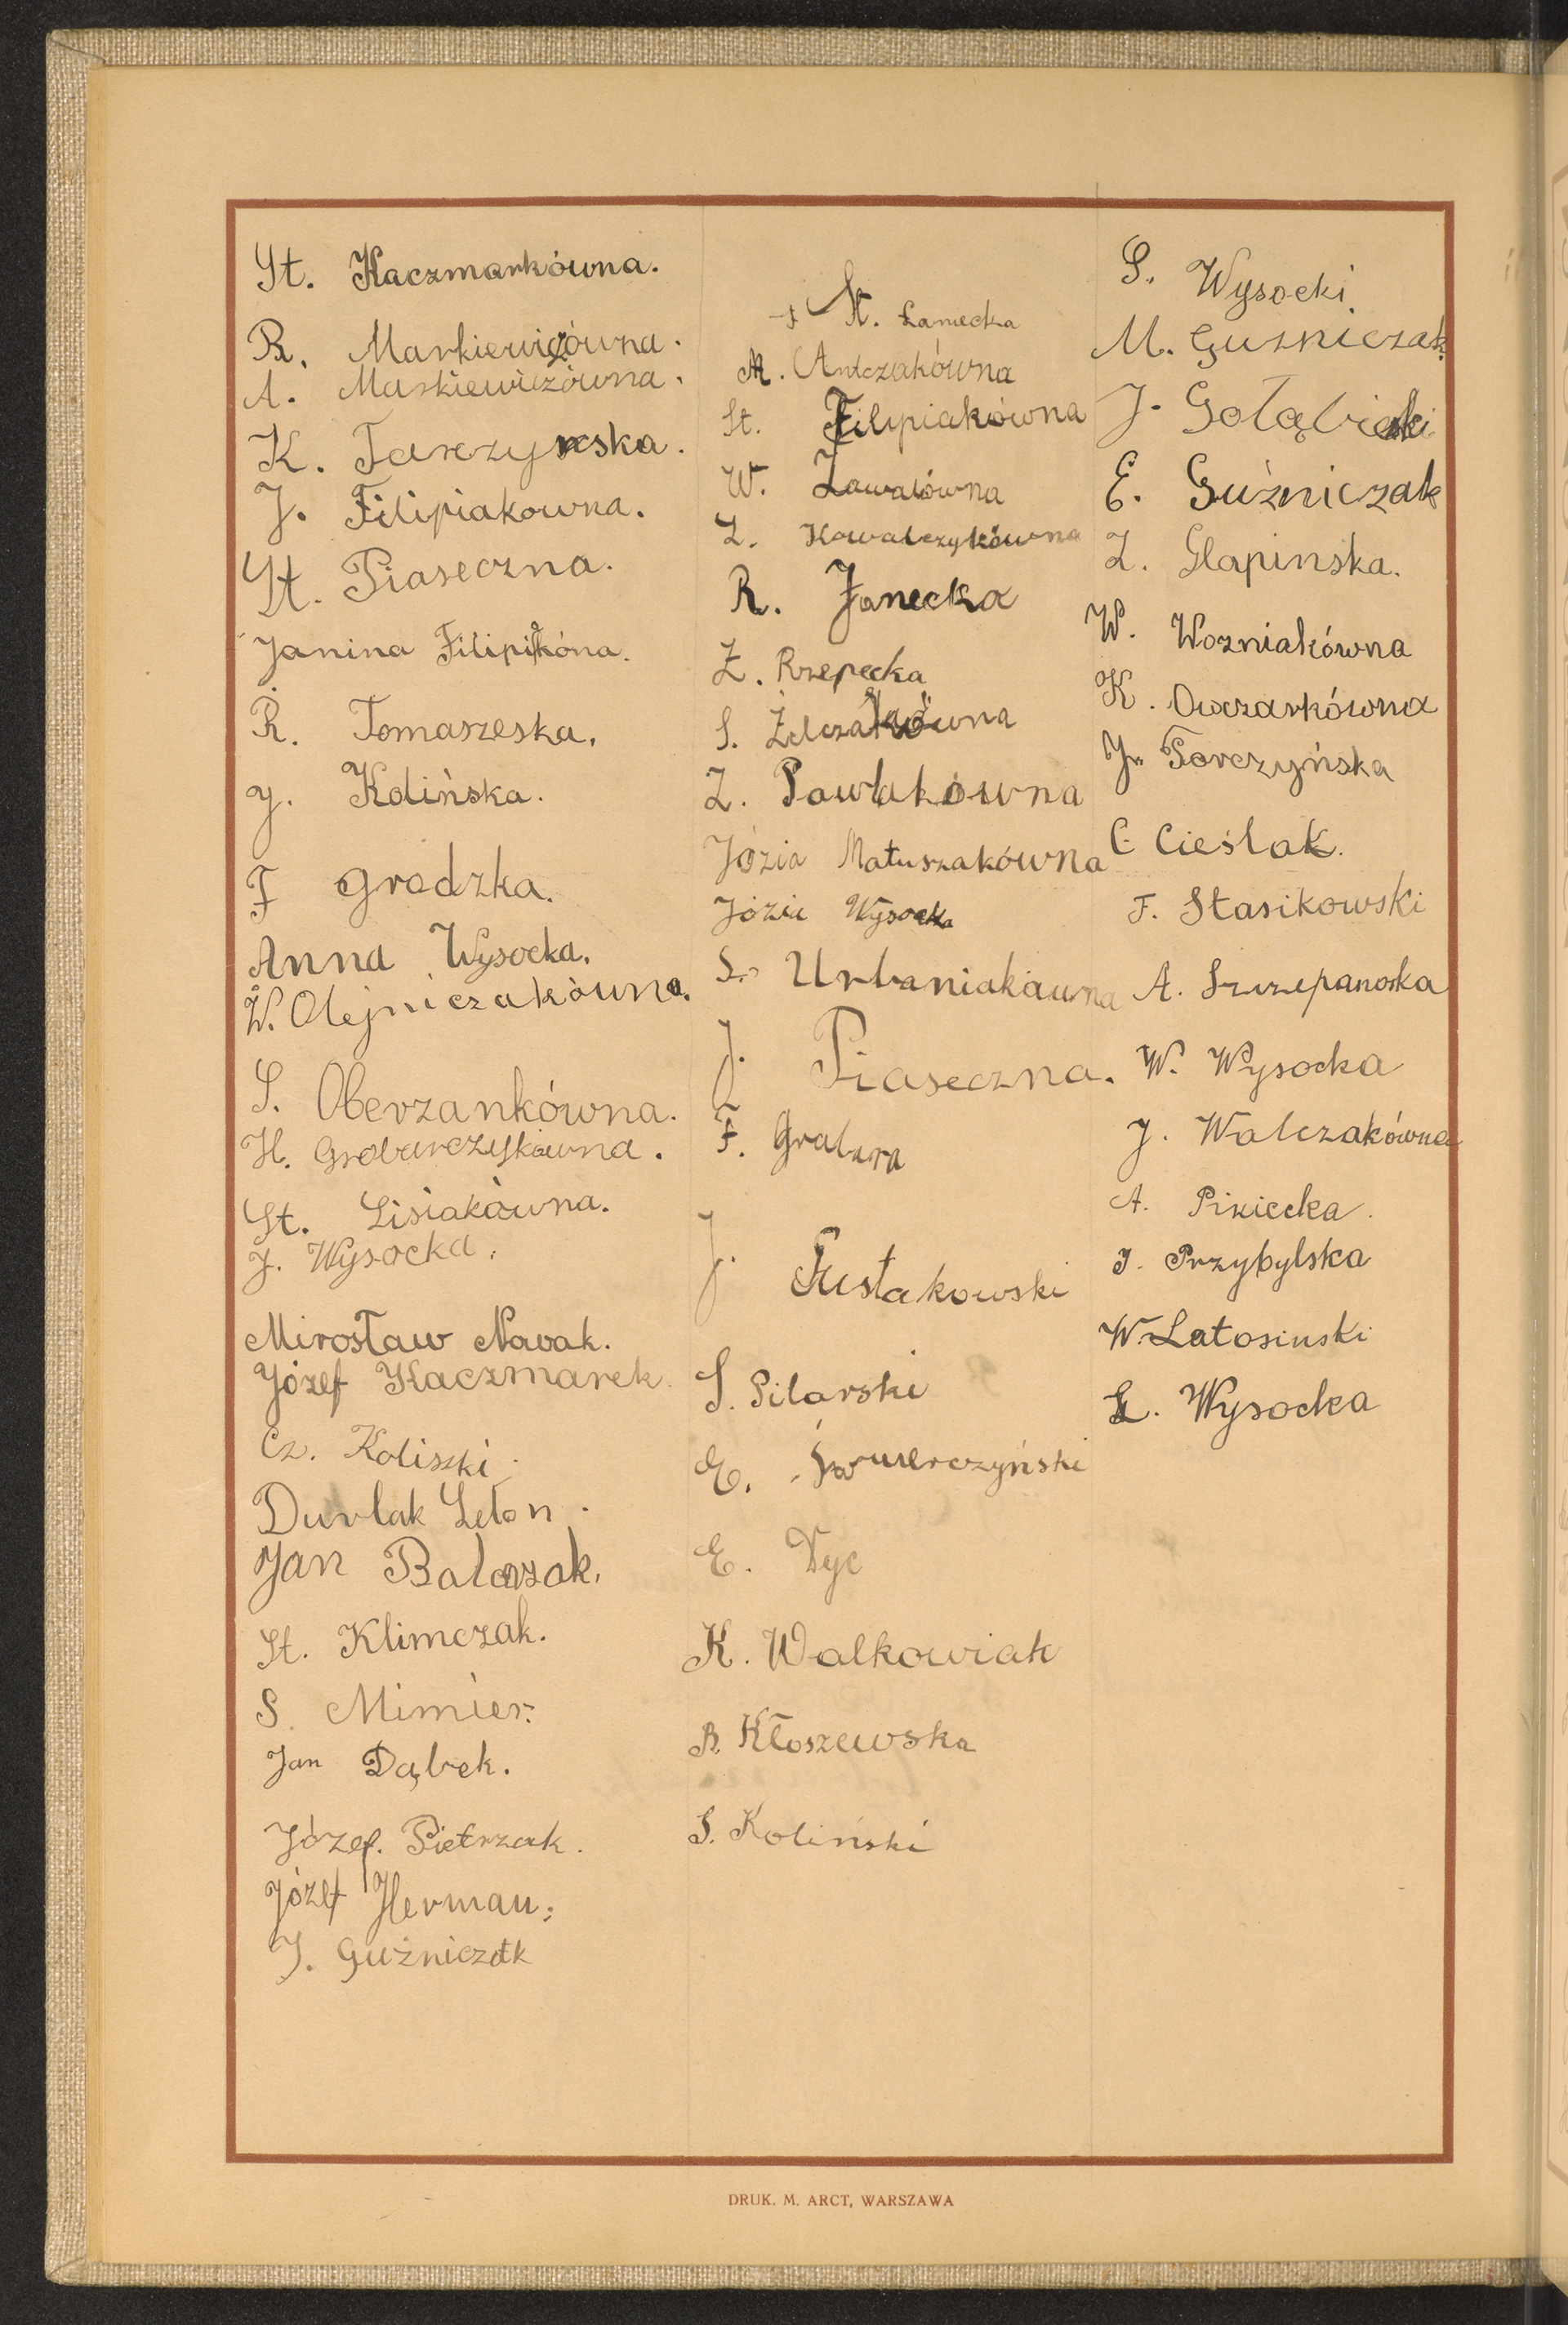 St. Kaczmarkówna.
R. Markiewiczówna.
A. Markiewiczówna.
K. Tarczynska.
J. Filipiakowna.
St. Piaseczna.
Janina Filipikóna.
R. Tomaszeska.
J. Kolińska.
F Grodzka.
Anna Wysocka.
W. Olejniczakówna.
S. Oberzankówna.
H. Grobarczykówna.
St. Lisiakówna.
J. Wysocka.
Mirosław Nowak.
Józef Kaczmarek
Cz. Koliszki
Durlak Leon.
Jan Balcrzak.
St. Klimczak.
S. Mimier.
Jan Dąbek.
Józef. Pietrzak.
Józef Herman.
J. Guźniczak
St. Łaniecka
M. Antczakówna
St. Filipiakówna
W. Zawalówna
Z. Kowalczykówna
R. Janecka
Z. Rzepecka
S. Żelczakówna
Z. Pawlakówna
Józia Matuszakówna
Józia Wysocka
S. Urbaniakówna
J. Piaseczna.
F. Grabara
J. Gustakowski
S. Pilarski
E. Świerczyński
E. Dyc
K. Walkowiak
R. Kłoszewska
S. Koliński
S. Wysocki
M. Guzniczak
J. Gołąbiecki
E. Guźniczak
Z. Glapinska.
W. Wozniakówna
K. Owczarkówna
J. Torczyńska
C. Cieślak.
F. Stasikowski
A. Szczepanoska
W. Wysocka
J. Walczakówna
A. Piniecka.
J. Przybylska
W. Latosinski
L. Wysocka
DRUK. M. ARCT, WARSZAWA